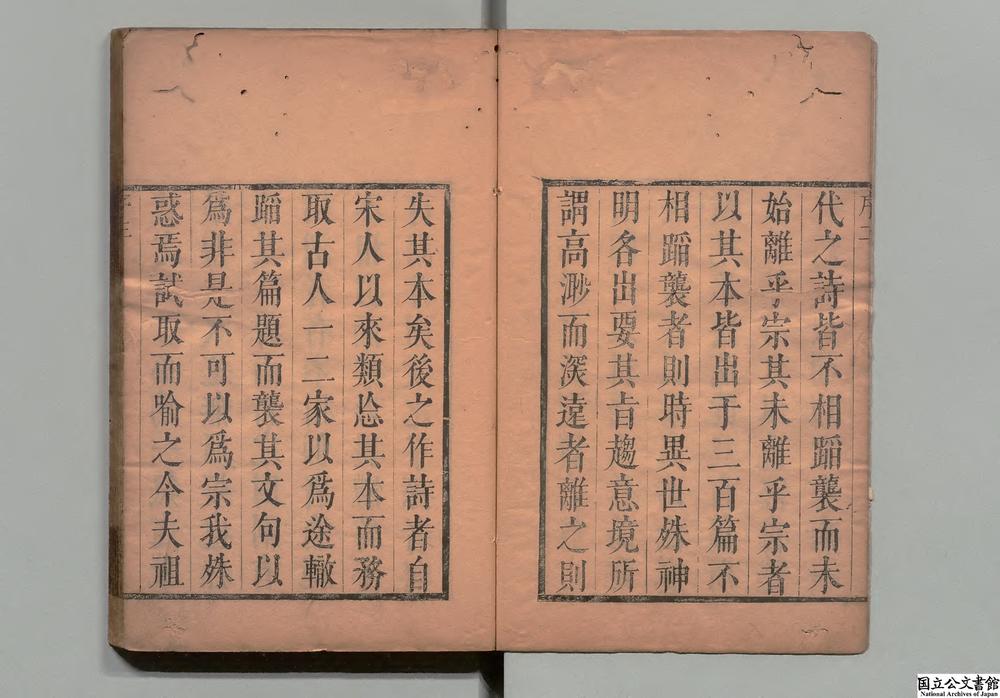 代之詩皆不相蹈襲而未
始離乎宗其未離乎宗者
以其本皆出于三百篇不
相蹈襲者則時異世殊神
明各出要其旨趨意境所
謂高渺而深遠者離之則
失其本矣後之作詩者自
宋人以來類忘其本而務
取古人一二家以爲途轍
蹈其篇題而襲其文句以
爲非是不可以爲宗我殊
惑焉試取而喻之今夫祖
国立公文書館
National Archives of Japan